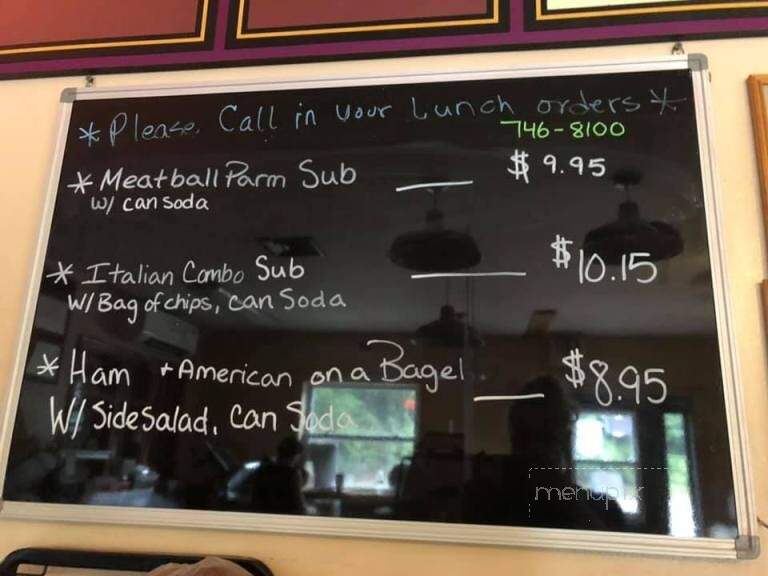 *Please, Call in your Lunch orders*
746-8100
*Meatball Parm Sub ___ $9.95
w/ can soda
*Italian Combo Sub ___ $10.15
W/ Bag of chips, can Soda
*Ham + American on a Bagel ___ $8.95
W/ Side Salad, Can Soda
menupix